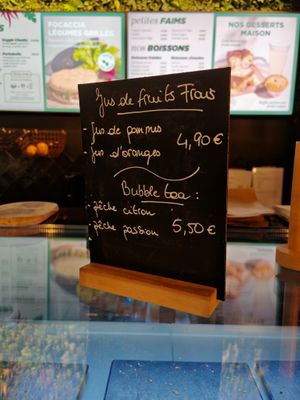 FOCACCIA
LÉGUMES GRILLÉS
petites FAIMS
nos BOISSONS
NOS DESSERTS
MAISON
Jus de fruits Frais
- Jus de pommes
- Jus d'oranges 4,90 €
Bubble tea :
- pêche citron
- pêche passion 5,50 €